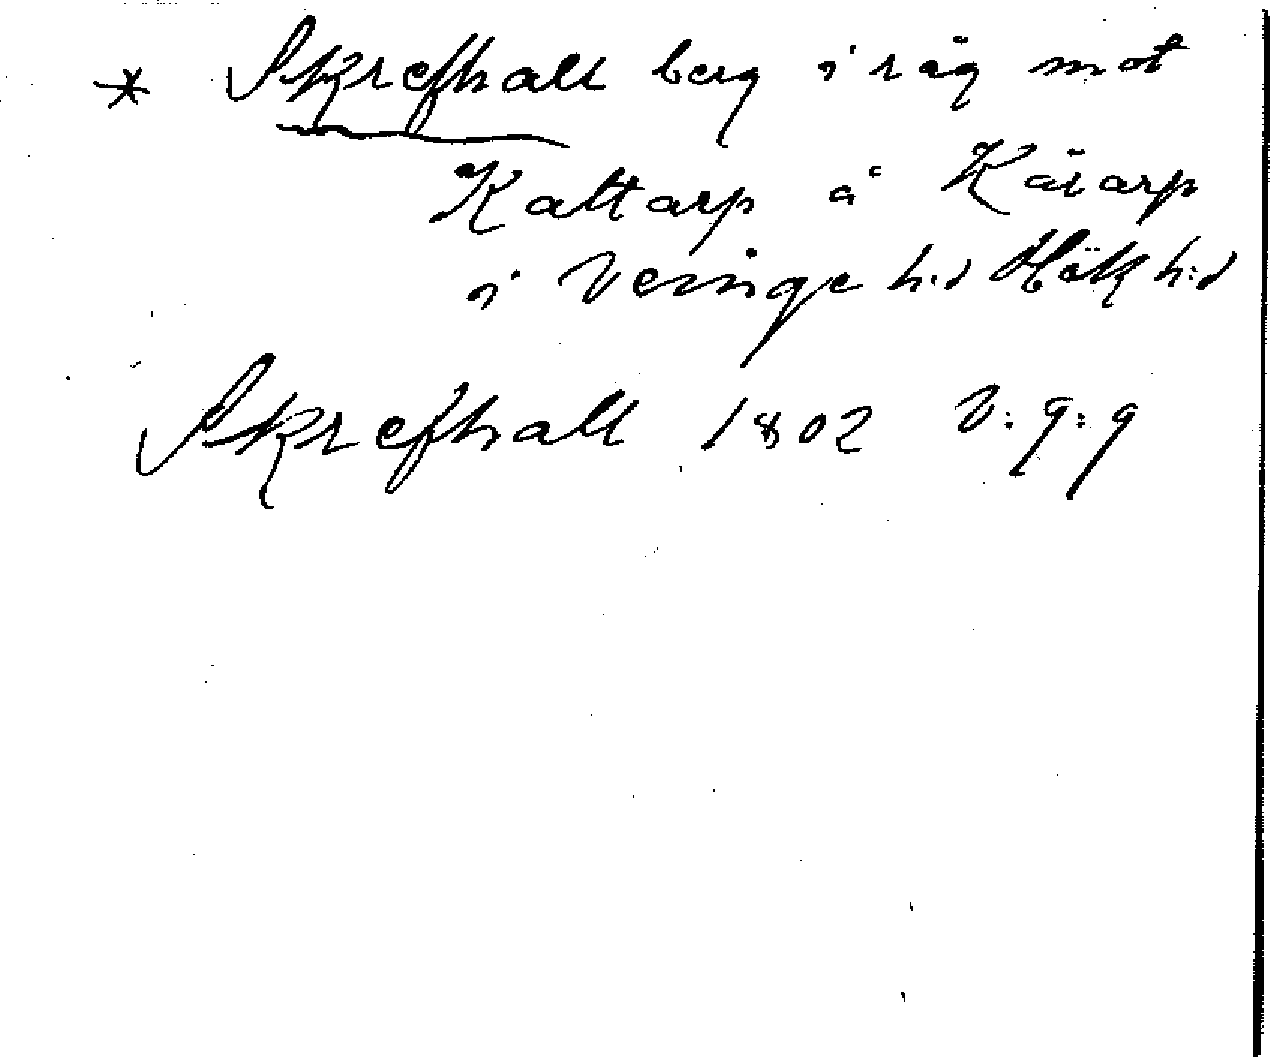 * Skrefhall berg i råg mot
Kattarp å Kärarp
i Veinge h:d Hök h:d
Skrefhall 1802 V:g:g